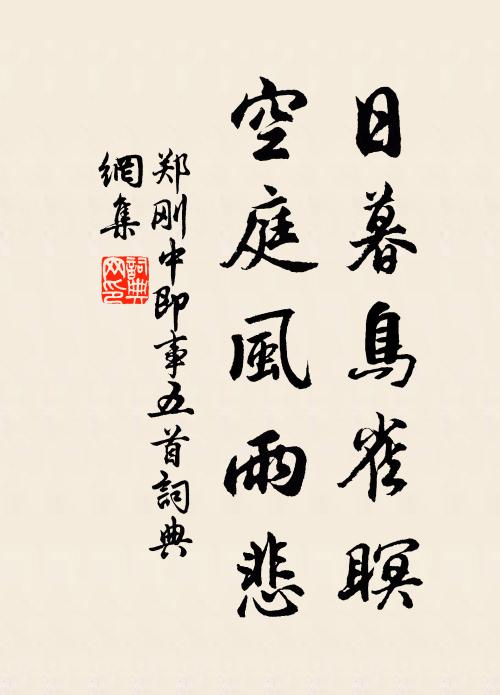 日暮鳥雀瞑
空庭風雨悲
郑刚中即事五首詞典
網集
詞典
网印